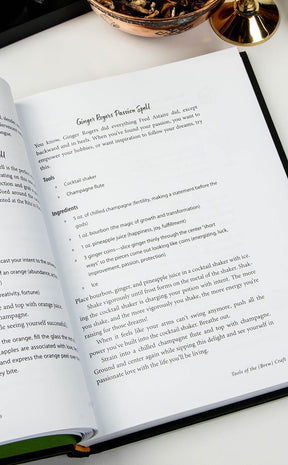 Ginger Rogers Passion Spell
You know, Ginger Rogers did everything Fred Astaire did, except
backward and in heels. When you've found your passion, you want to
empower your hobbies, or want inspiration to follow your dreams, try
this.
Tools
• Cocktail shaker
• Champagne flute
Ingredients
• 3 oz. of chilled champagne (fertility, making a statement before the
gods)
• 1 oz. bourbon (the magic of growth and transformation)
• 1 oz. pineapple juice (happiness, joy, fulfillment)
• 3 ginger coins—slice ginger thinly through the center "short
ways" to the pieces come out looking like coins (energizing, luck,
improvement, passion, protection)
• Ice
Place bourbon, ginger, and pineapple juice in a cocktail shaker with ice.
Shake vigorously until frost forms on the metal of the shaker. Shak-
ing the cocktail shaker is charging your potion with intent. The more
you shake, and the more vigorously you shake, the more energy you're
raising for those dreams!
When it feels like your arms can't swing anymore, push all the
power you've built into the cocktail shaker. Breathe out.
Strain into a chilled champagne flute and top with champagne.
Ground and center again while sipping this delight and see yourself in
passionate love with the life you'll be living.
Tools of the (Brew) Craft
ll
cast your intent to the
if orange (abundance,
creativity, fortune)
and top with orange juice.
champagne.
while seeing yourself successful.
the orange, fill the glass the
apples are associated with
and express the orange peel
ey bite.